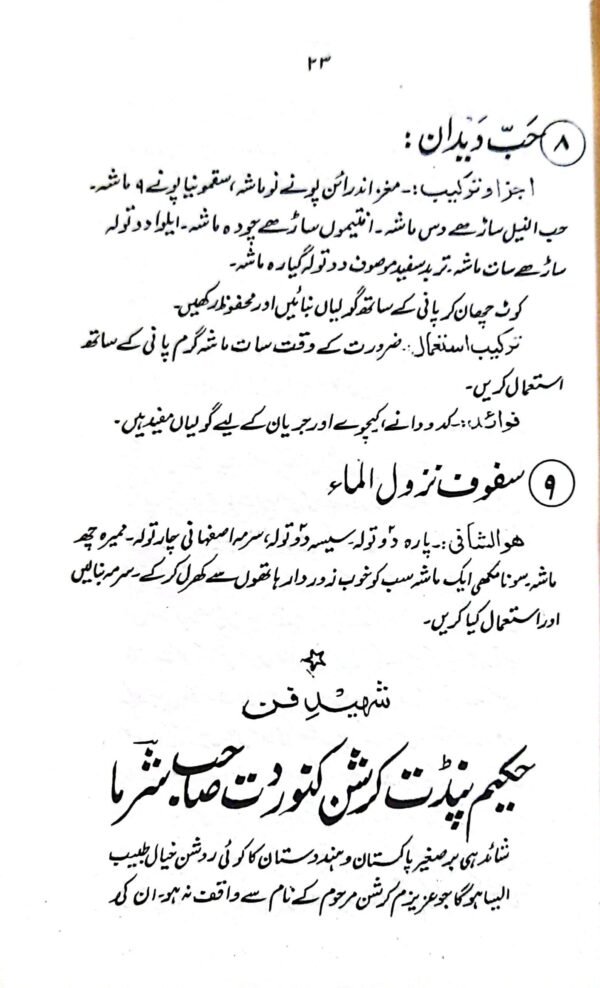 ۲۳
۸ حَبّ دِیدان :
اجزا و ترکیب :۔ مغز اندرائن پونے نو ماشہ، سقمونیا پونے ۹ ماشہ۔
حب النیل ساڑھے دس ماشہ۔ افتیموں ساڑھے چودہ ماشہ۔ ایلوا دو تولہ
ساڑھے سات ماشہ۔ تربد سفید موصوف دو تولہ گیارہ ماشہ۔
کوٹ چھان کر پانی کے ساتھ گولیاں بنائیں اور محفوظ رکھیں۔
ترکیب استعمال :۔ ضرورت کے وقت سات ماشہ گرم پانی کے ساتھ
استعمال کریں۔
فوائد :۔ کدو دانے، کیچوے اور جریان کے لیے گولیاں مفید ہیں۔
۹ سفوف نزول الماء
ھوالشافی :۔ پارہ دو تولہ۔ سیسہ دو تولہ، سرمہ اصفہانی چار تولہ۔ ممیرہ چھ
ماشہ۔ سونا مکھی ایک ماشہ سب کو خوب زور دار ہاتھوں سے کھرل کر کے سرمہ بنالیں
اور استعمال کیا کریں۔
شہیدِ فن
حکیم پنڈت کرشن کنور دت صاحب شرما
شائد ہی برصغیر پاکستان و ہندوستان کا کوئی روشن خیال طبیب
ایسا ہو گا جو عزیزم کرشن مرحوم کے نام سے واقف نہ ہو۔ ان کی